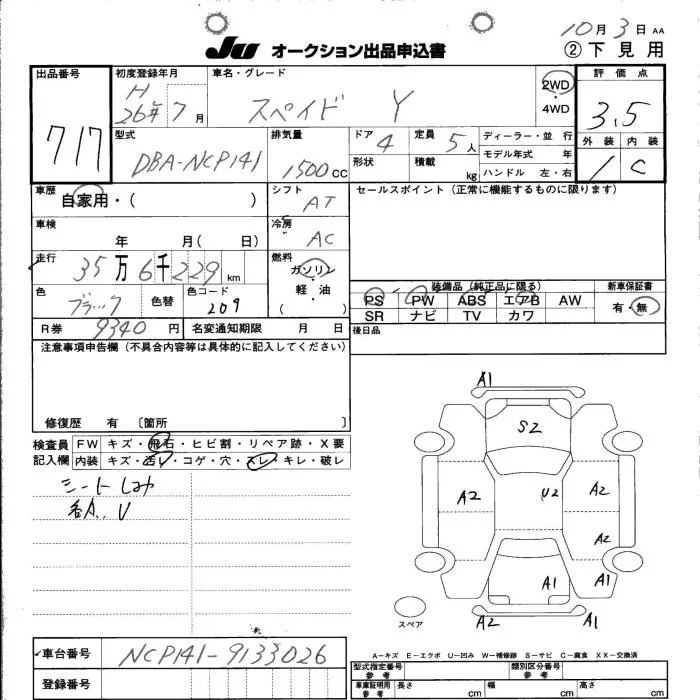 10月3日 AA
Ju オークション出品申込書 ②下見用
出品番号 717
初度登録年月 H 26年7月
車名・グレード スペイド Y
2WD・4WD
評価点 3.5
外装 1 内装 C
型式 DBA-NCP141
排気量 1500cc
ドア 4 定員 5人
形状 積載 kg
ディーラー・並行
モデル年式 年
ハンドル 左・右
車歴 自家用・( )
シフト AT
セールスポイント(正常に機能するものに限ります)
車検 年 月( 日)
冷房 AC
走行 35万6千229km
燃料 ガソリン 軽・油 ( )
色 ブラック 色替 色コード 209
装備品(純正品に限る) 新車保証書
PS PW ABS エアB AW 有・無
SR ナビ TV カワ
R券 9340円 名変通知期限 月 日
後日品
注意事項申告欄(不具合内容等は具体的に記入してください)
修復歴 有 〔箇所 〕
検査員記入欄
FW キズ・飛石・ヒビ割・リペア跡・X要
内装 キズ・汚レ・コゲ・穴・スレ・キレ・破レ
シートしみ
A1
S2
A2 U2 A2
A2
A1 A1
A2 A1
スペア
A-キズ E-エクボ U-凹み W-補修跡 S-サビ C-腐食 XX-交換済
車台番号 NCP141-9133026
登録番号
型式指定番号 参考 類別区分番号 参考
車庫証明用 参考 長さ cm 幅 cm 高さ cm